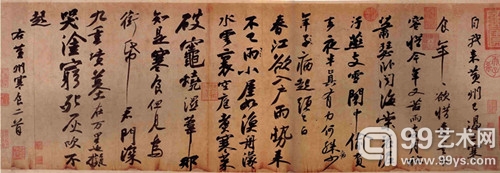 自我来黄州已過三寒
食年年欲惜春春去不
容惜今年又苦雨兩月秋
蕭瑟卧聞海棠花泥
汙燕支雪闇中偷負
去夜半真有力何殊少
年子病起頭已白
春江欲入戶雨勢来
不已雨小屋如漁舟濛濛
水雲裏空庖煮寒菜
破竈燒濕葦那
知是寒食但見烏
銜帋君門深
九重墳墓在万里也擬
哭塗窮死灰吹不
起
右黄州寒食二首
99艺术网
www.99ys.com